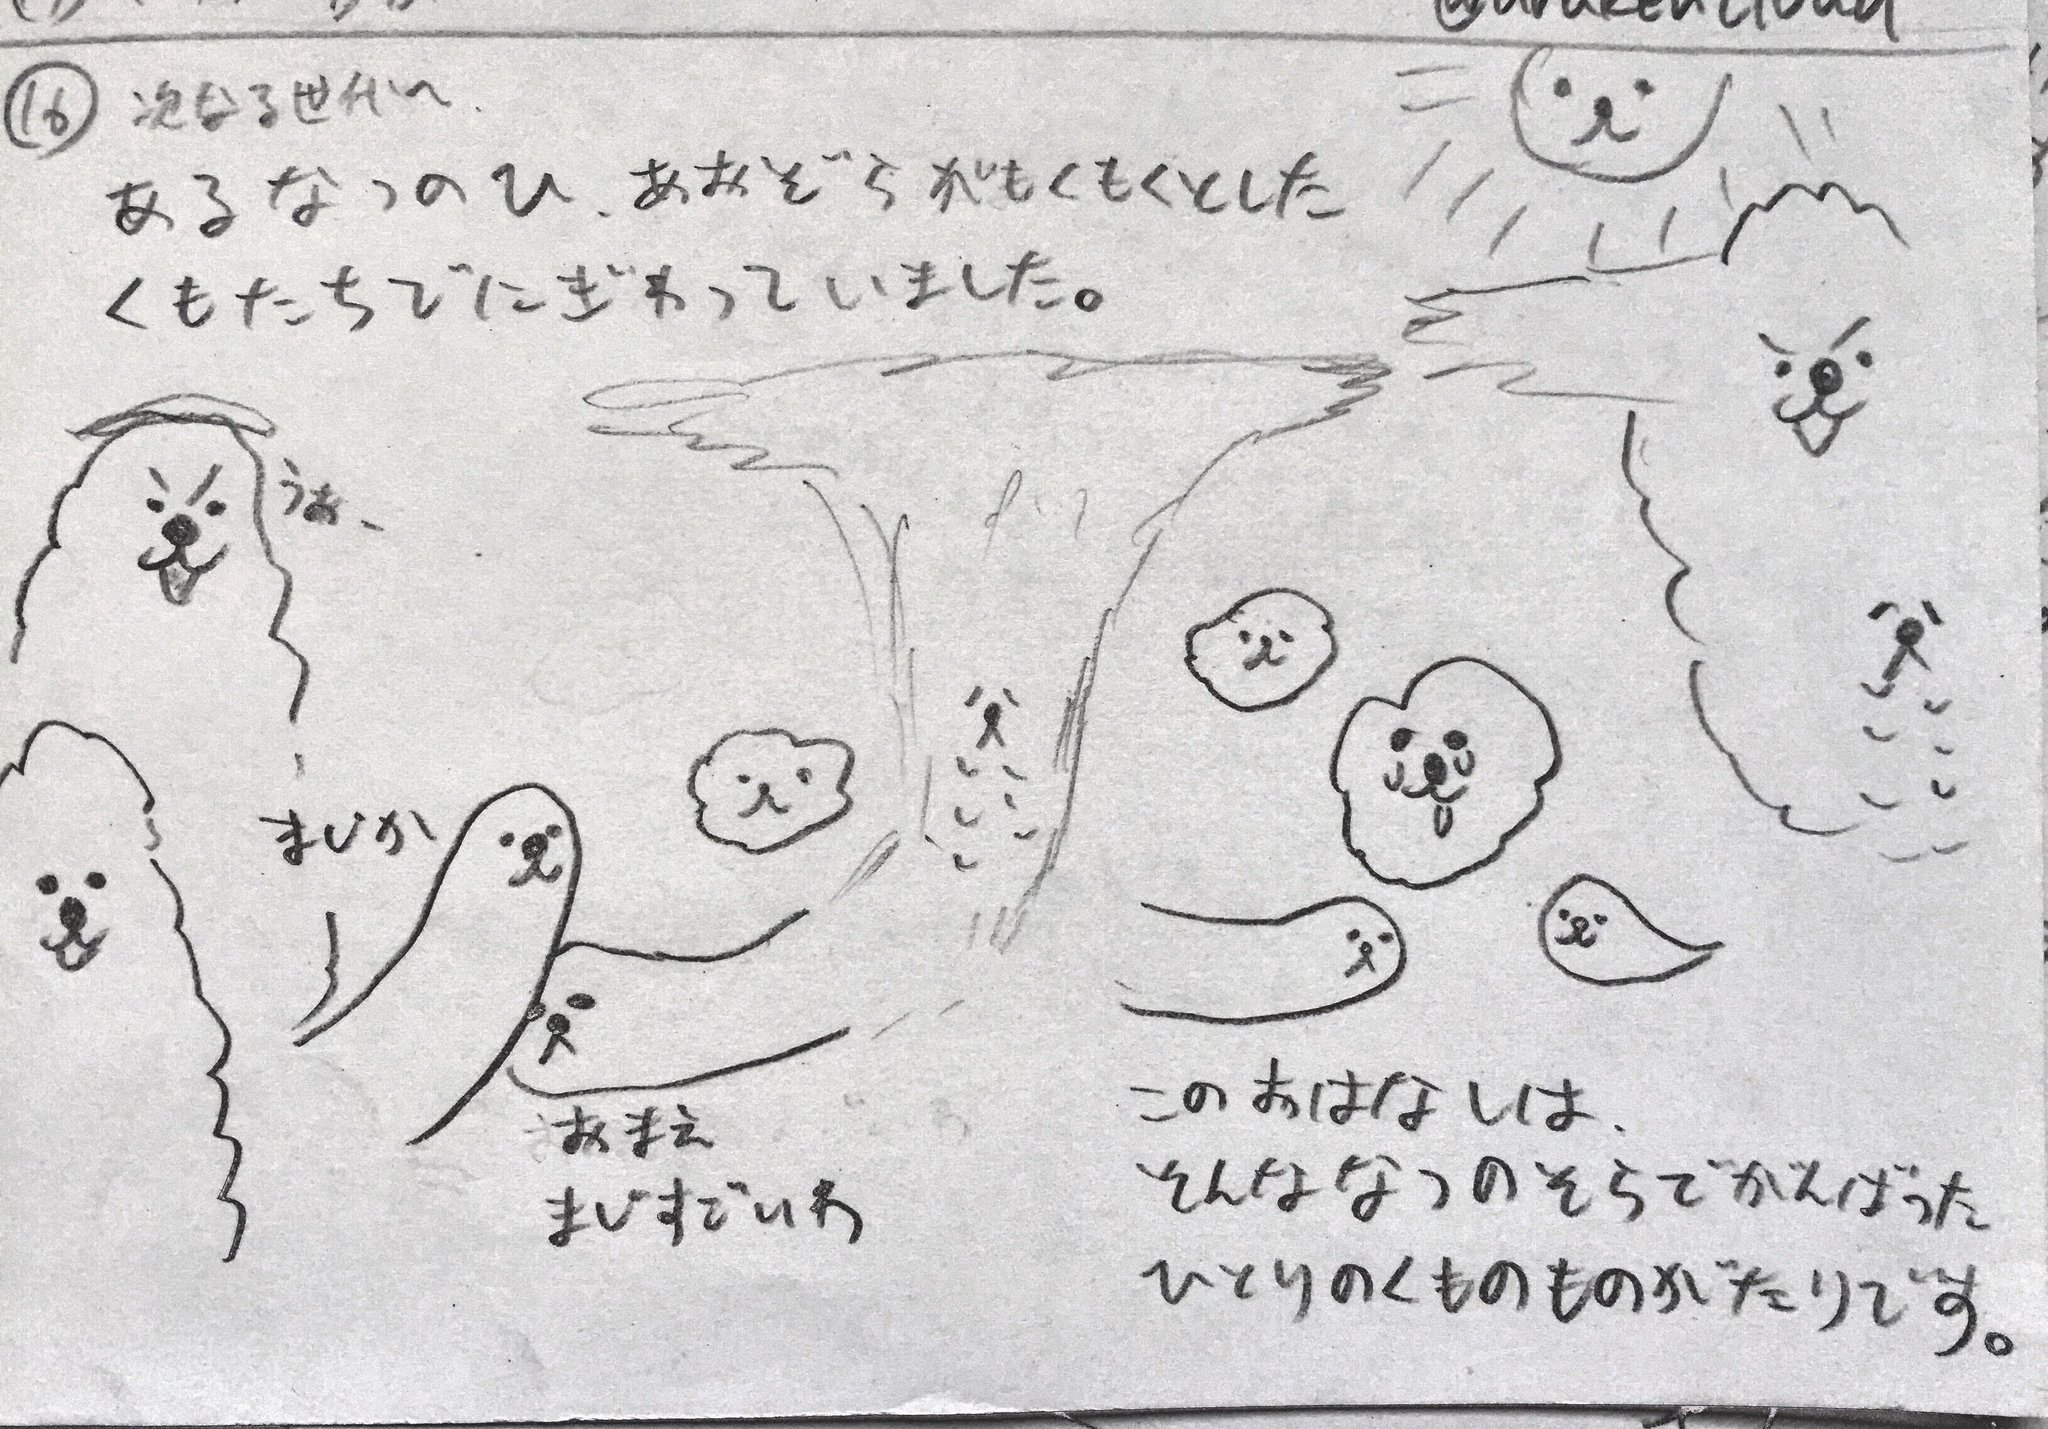 16 次なる世代へ
あるなつのひ、あおぞらがもくもくとした
くもたちでにぎわっていました。
うおー
まじか
おまえ
まじすごいわ
このおはなしは、
そんななつのそらでがんばった
ひとりのくものものがたりです。